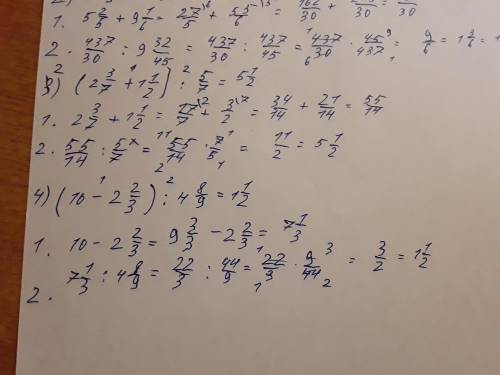 1. 5 2/5 + 9 1/6 = 27/5 \6 + 55/6 \5 = 162/30 +
2. 437/30 : 9 32/45 = 437/30 : 437/45 = 437/30 · 45/437 = 9/6 = 1 3/6 = 1
3) (2 3/7 + 1 1/2) : 5/7 = 5 1/2
1. 2 3/7 + 1 1/2 = 17/7 \2 + 3/2 \7 = 34/14 + 21/14 = 55/14
2. 55/14 : 5/7 = 55/14 · 7/5 = 11/2 = 5 1/2
4) (10 - 2 2/3) : 4 8/9 = 1 1/2
1. 10 - 2 2/3 = 9 3/3 - 2 2/3 = 7 1/3
2. 7 1/3 : 4 8/9 = 22/3 : 44/9 = 22/3 · 9/44 = 3/2 = 1 1/2